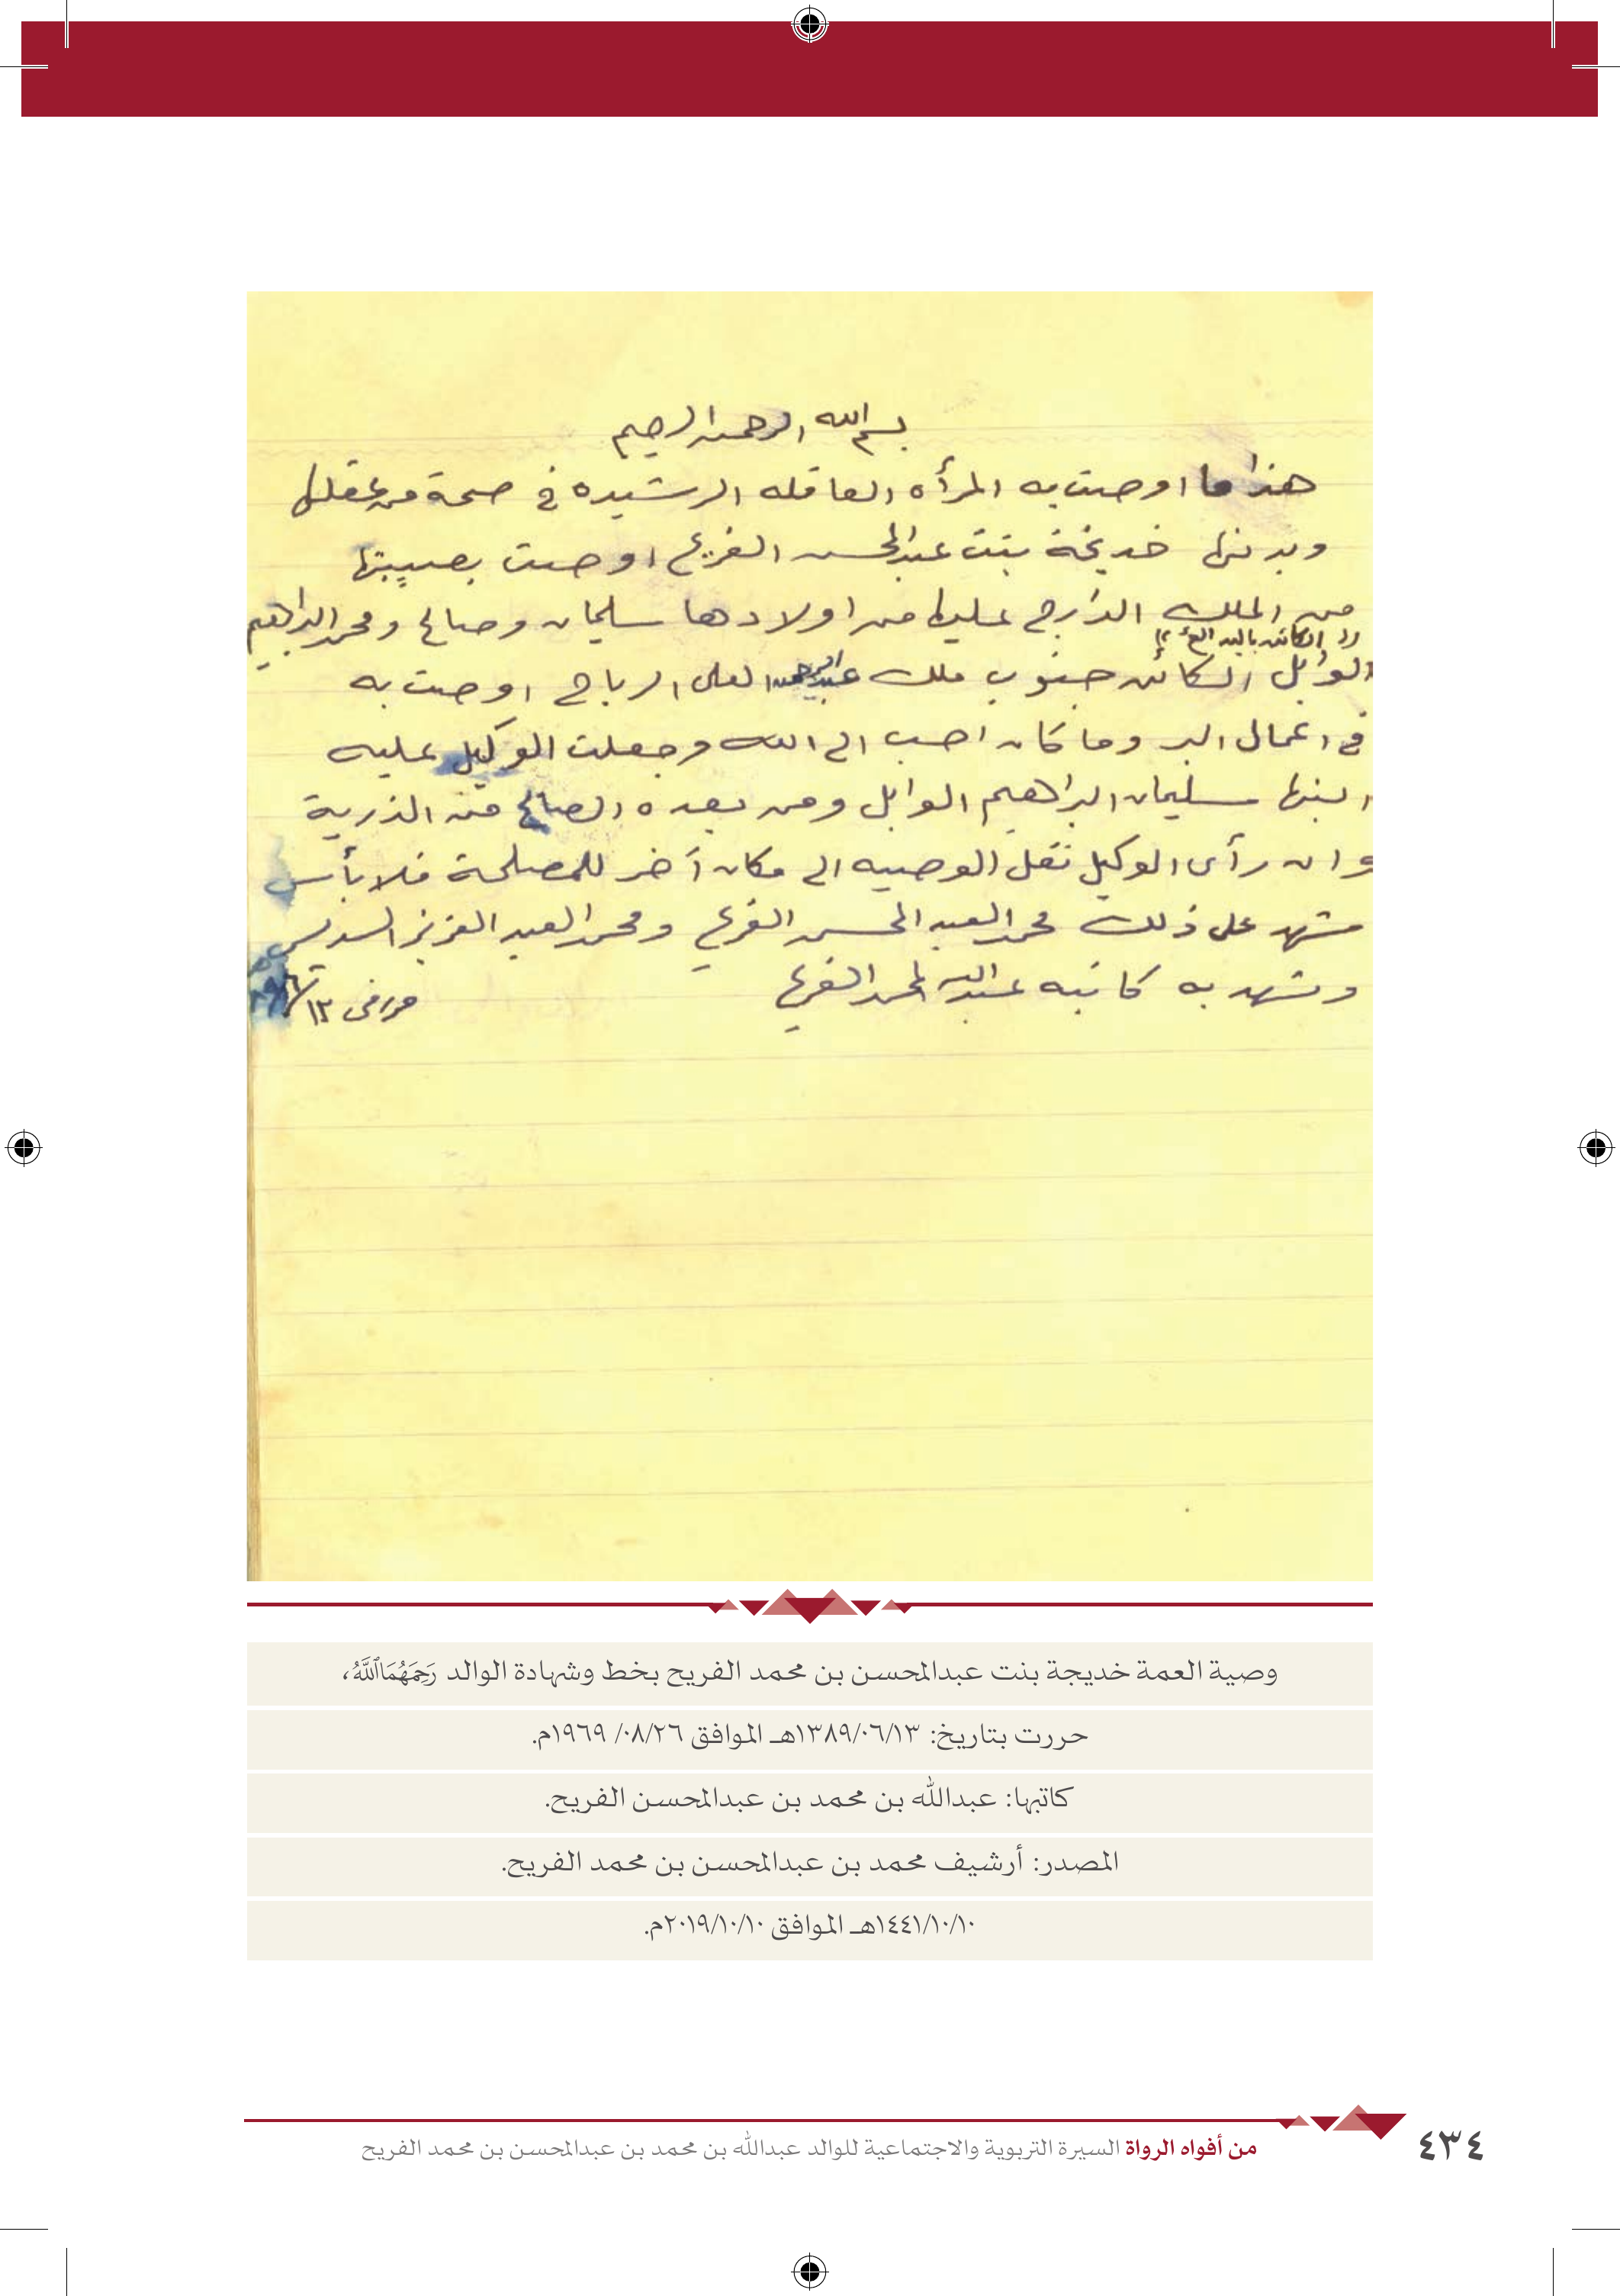 بسم الله الرحمن الرحيم
هذا ما اوصت به المرأه العاقله الرشيده في صحة من عقلها
وبدنها خديجة بنت عبدالمحسن الفريح اوصت بصيبتها
من الملك الدارج عليها من اولادها سليمان وصالح ومحمد البراهيم
(( الكائن بالبد
الوابل الكائن جنوب ملك عبدالرحمن العلى الرباح اوصت به
في اعمال البر وما كان احب الى الله وجعلت الوكيل عليه
ابنها سليمان البراهيم الوابل ومن بعده الصالح من الذرية
وان رأى الوكيل نقل الوصيه الى مكان آخر للمصلحة فلا بأس
شهد على ذلك محمد العبد المحسن الفريح ومحمد العبد العزيز السديس
وشهد به كاتبه عبدالله المحمد الفريح
وصية العمة خديجة بنت عبدالمحسن بن محمد الفريح بخط وشهادة الوالد رَحِمَهُمَااللَّهُ،
حررت بتاريخ: ١٣٨٩/٠٦/١٣هـ الموافق ٠٨/٢٦/ ١٩٦٩م.
كاتبها: عبدالله بن محمد بن عبدالمحسن الفريح.
المصدر: أرشيف محمد بن عبدالمحسن بن محمد الفريح.
١٤٤١/١٠/١٠هـ الموافق ٢٠١٩/١٠/١٠م.
من أفواه الرواة السيرة التربوية والاجتماعية للوالد عبدالله بن محمد بن عبدالمحسن بن محمد الفريح
٤٣٤